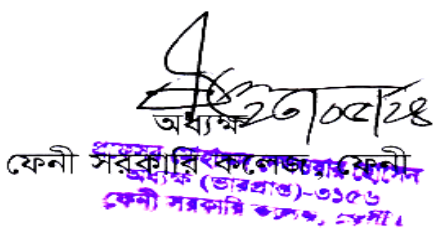 ২৩/০৫/২৪
অধ্যক্ষ
ফেনী সরকারি কলেজ, ফেনী
প্রফেসর হোসেন
অধ্যক্ষ (ভারপ্রাপ্ত)-৩১৫৬
ফেনী সরকারি কলেজ, ফেনী।